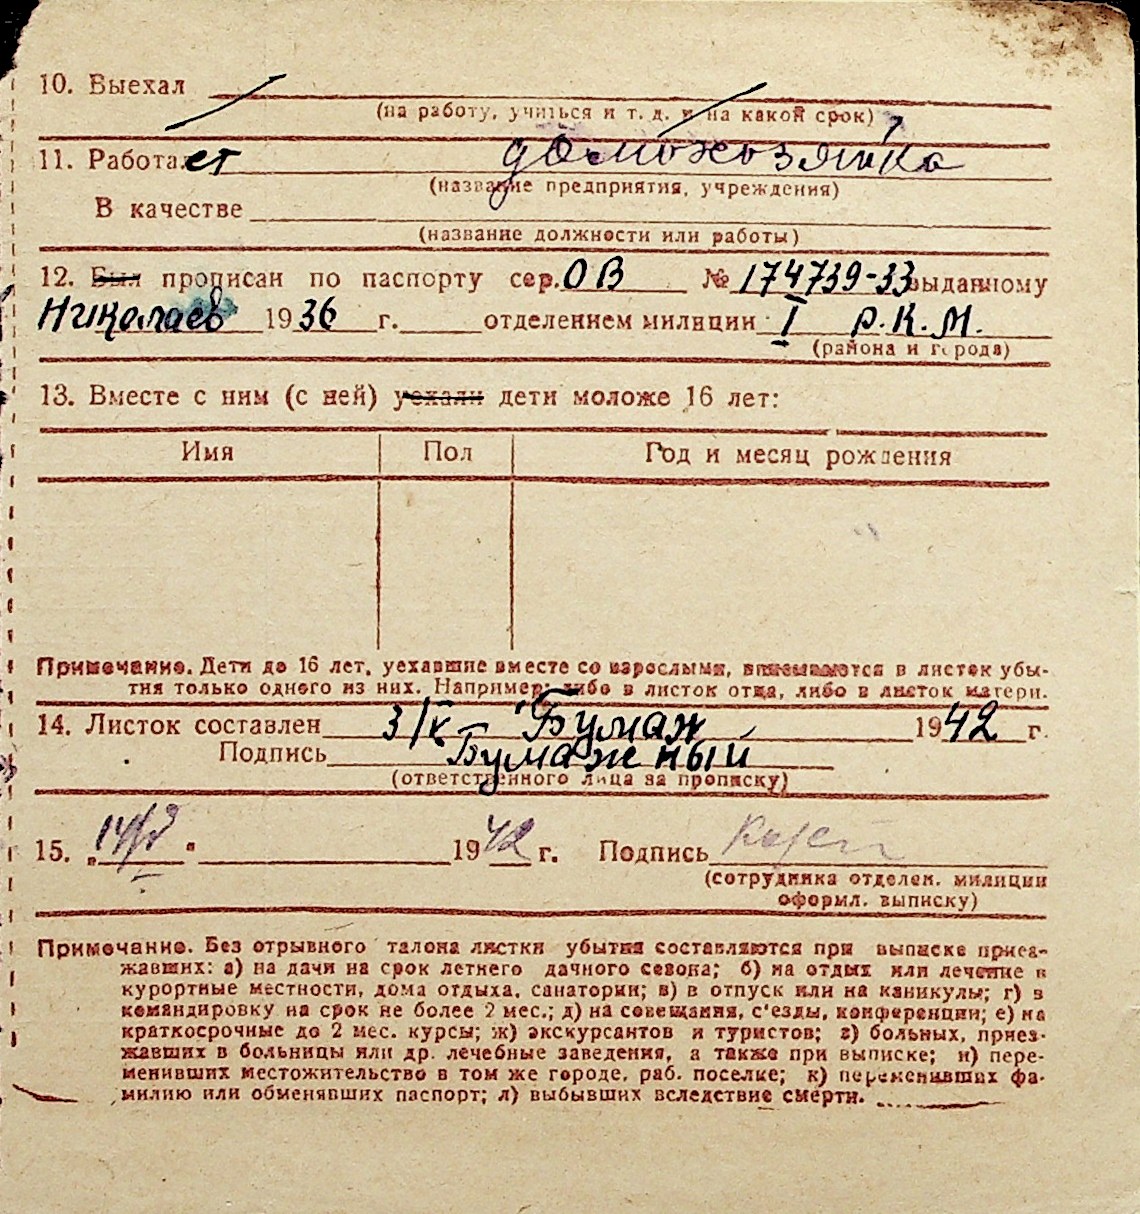 10. Выехал
(на работу, учиться и т. д. и на какой срок)
11. Работает домохозяйка
(название предприятия, учреждения)
В качестве
(название должности или работы)
12. Был прописан по паспорту сер. ОВ № 174739-33 выданному
Николаев 1936 г. отделением милиции I Р.К.М.
(района и города)
13. Вместе с ним (с ней) уехали дети моложе 16 лет:
Имя Пол Год и месяц рождения
Примечание. Дети до 16 лет, уехавшие вместе со взрослыми, вписываются в листок убы-
тия только одного из них. Например: либо в листок отца, либо в листок матери.
14. Листок составлен 3/X Бумаж 1942 г.
Подпись Бумажный
(ответственного лица за прописку)
15. „ “ 1942 г. Подпись
(сотрудника отделен. милиции
оформл. выписку)
Примечание. Без отрывного талона листки убытия составляются при выписке приез-
жавших: а) на дачи на срок летнего дачного сезона; б) на отдых или лечение в
курортные местности, дома отдыха, санатории; в) в отпуск или на каникулы; г) в
командировку на срок не более 2 мес.; д) на совещания, с'езды, конференции; е) на
краткосрочные до 2 мес. курсы; ж) экскурсантов и туристов; з) больных, приез-
жавших в больницы или др. лечебные заведения, а также при выписке; и) пере-
менивших местожительство в том же городе, раб. поселке; к) переменивших фа-
милию или обменявших паспорт; л) выбывших вследствие смерти.